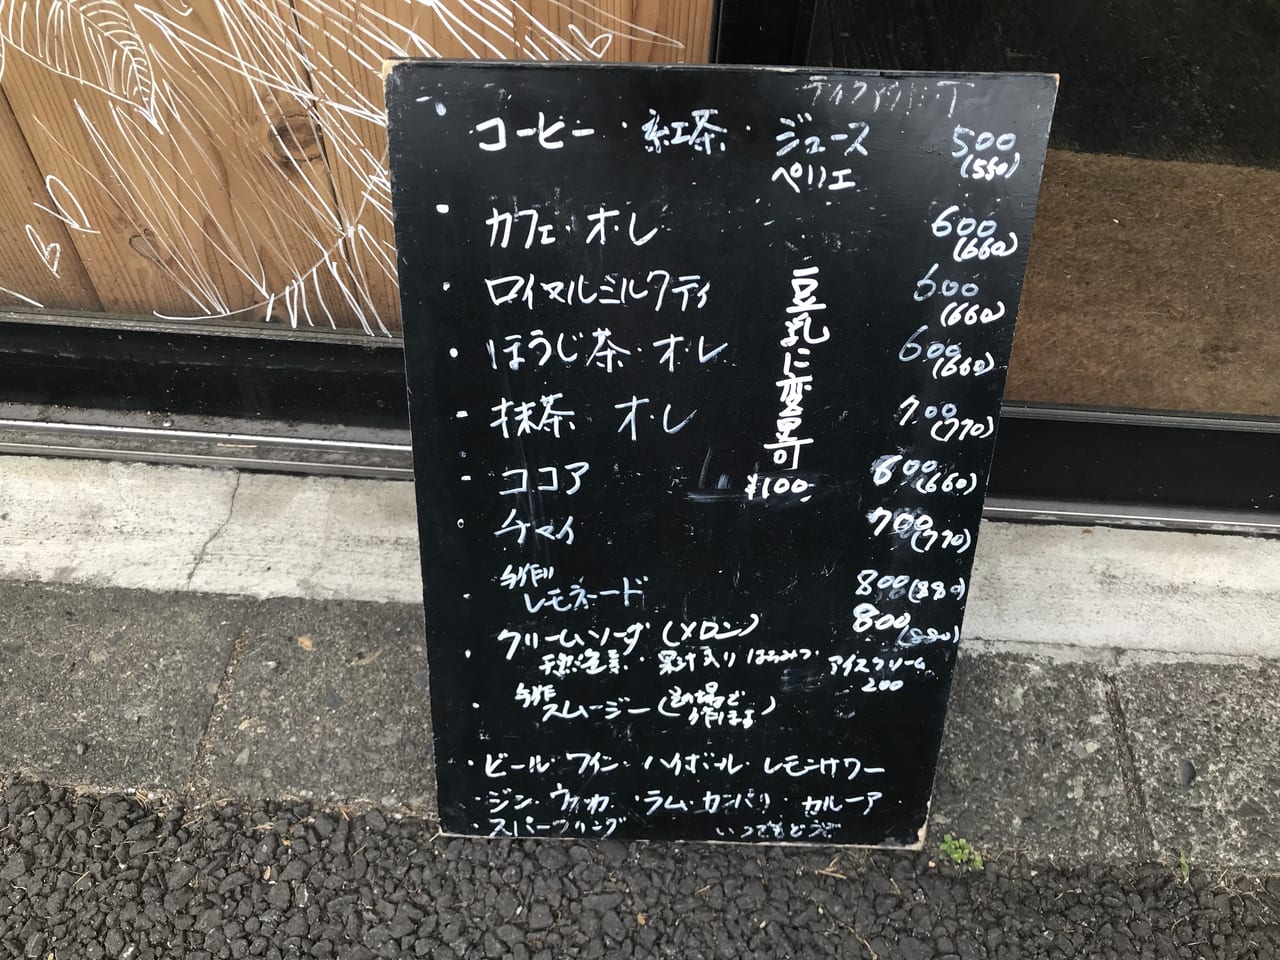 ・コーヒー・紅茶・ジュース 500
ペリエ (550)
・カフェ・オ・レ 600 (660)
・ロイヤルミルクティ 600 (660)
・ほうじ茶・オ・レ 600 (660)
・抹茶 オ・レ 700 (770)
・ココア 600 (660)
・チャイ 700 (770)
豆乳に変更可
¥100
・手作り
レモネード 800 (880)
・クリームソーダ(メロン) 800 (880)
果汁入り はちみつ
アイスクリーム
200
・手作
スムージー(その場で
作ります)
・ビール・ワイン・ハイボール・レモンサワー
・ジン・ウォッカ・ラム・カンパリ・カルーア
・スパークリング いつでもどうぞ